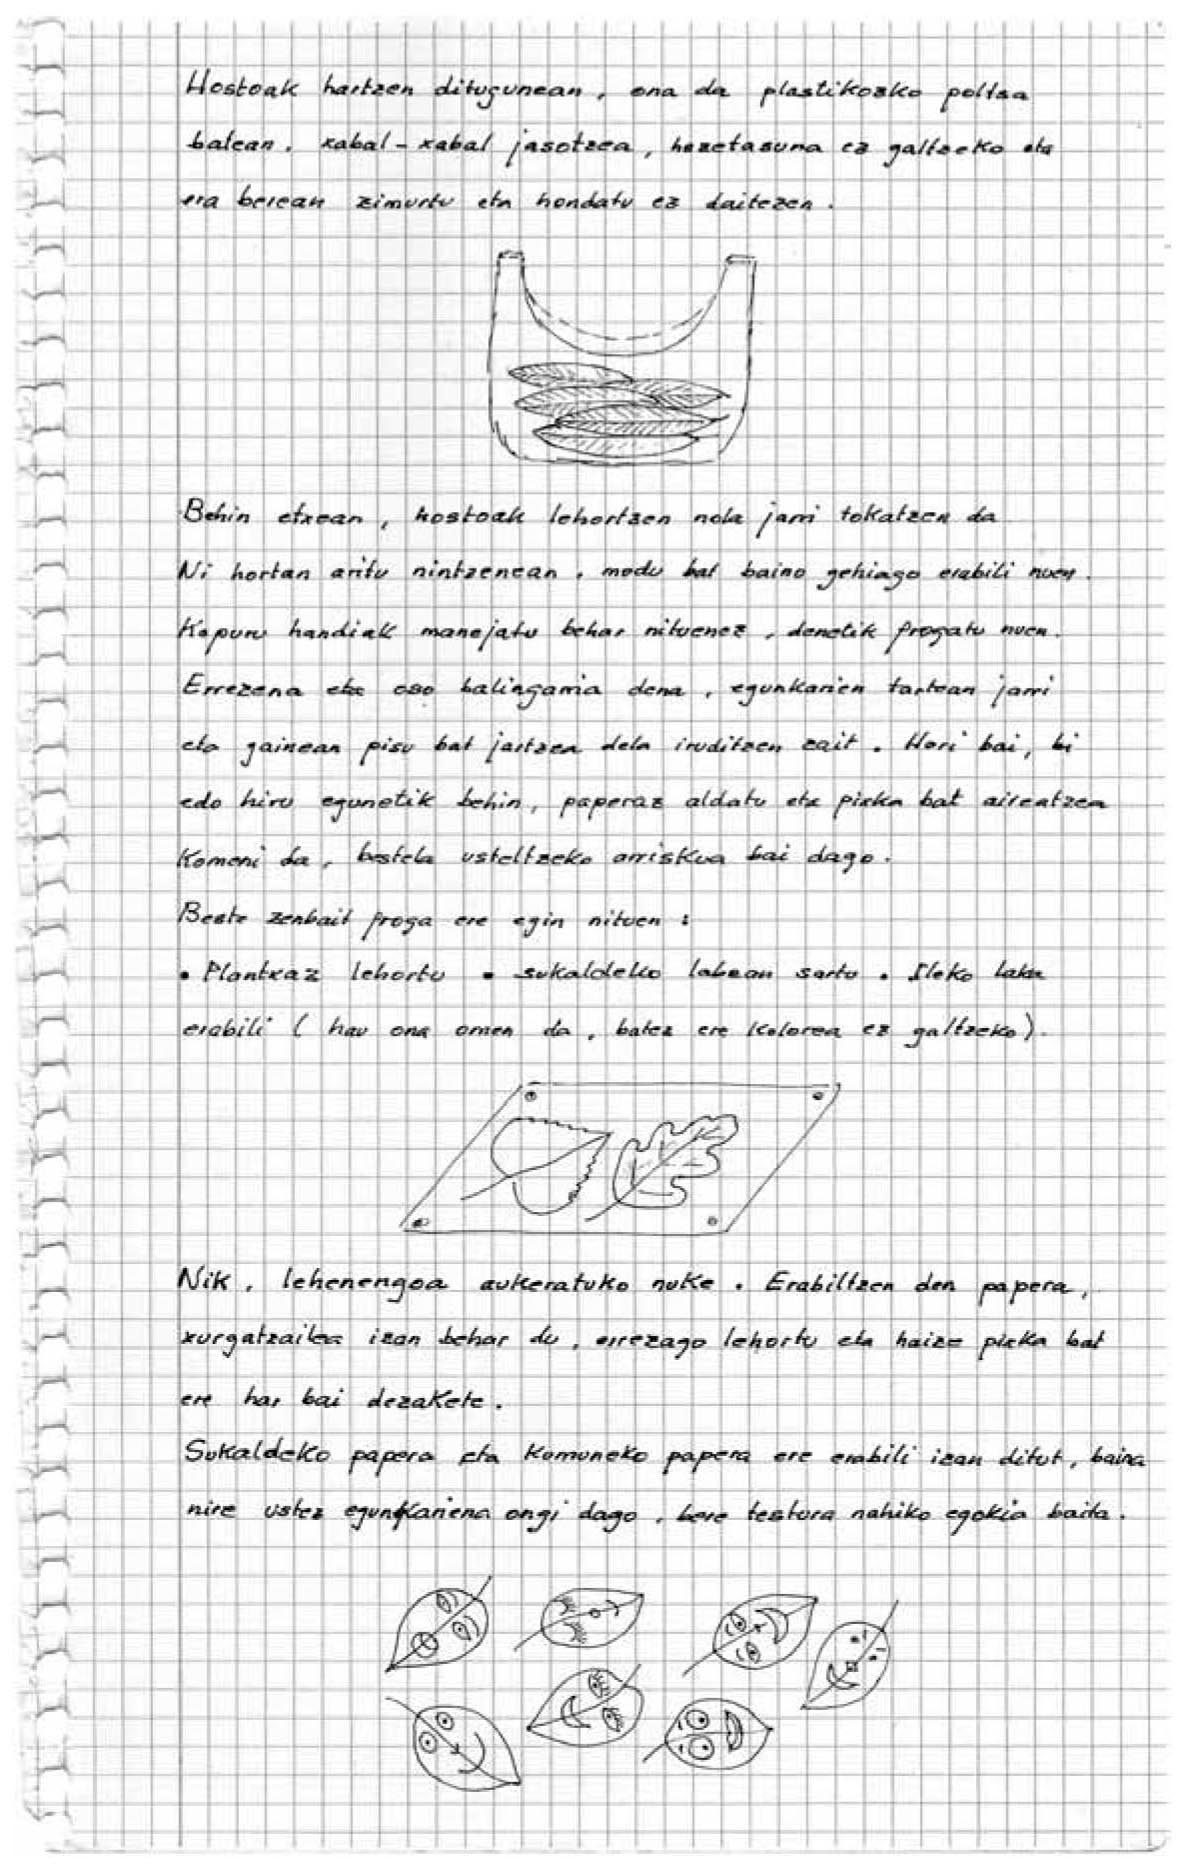 Hostoak hartzen ditugunean, ona da plastikozko poltsa
batean, xabal-xabal jasotzea, hezetasuna ez galtzeko eta
era berean zimurtu eta hondatu ez daitezen.
Behin etxean, hostoak lehortzen nola jarri tokatzen da
Ni hortan aritu nintzenean, modu bat baino gehiago erabili nuen.
Kopuru handiak manejatu behar nituenez, denetik progatu nuen.
Errezena eta oso baliagarria dena, egunkarien tartean jarri
eta gainean pisu bat jartzea dela iruditzen zait. Hori bai, bi
edo hiru egunetik behin, paperaz aldatu eta pixka bat aireatzea
Komeni da, bestela usteltzeko arriskua bai dago.
Beste zenbait proga ere egin nituen:
• Plantxaz lehortu • sukaldeko labean sartu • Ileko laka
erabili (hau ona omen da, batez ere kolorea ez galtzeko).
Nik, lehenengoa aukeratuko nuke. Erabiltzen den papera,
xurgatzailea izan behar du, errezago lehortu eta haize pixka bat
ere har bai dezakete.
Sukaldeko papera eta komuneko papera ere erabili izan ditut, baina
nire ustez egunkariena ongi dago, bere testura nahiko egokia baita.